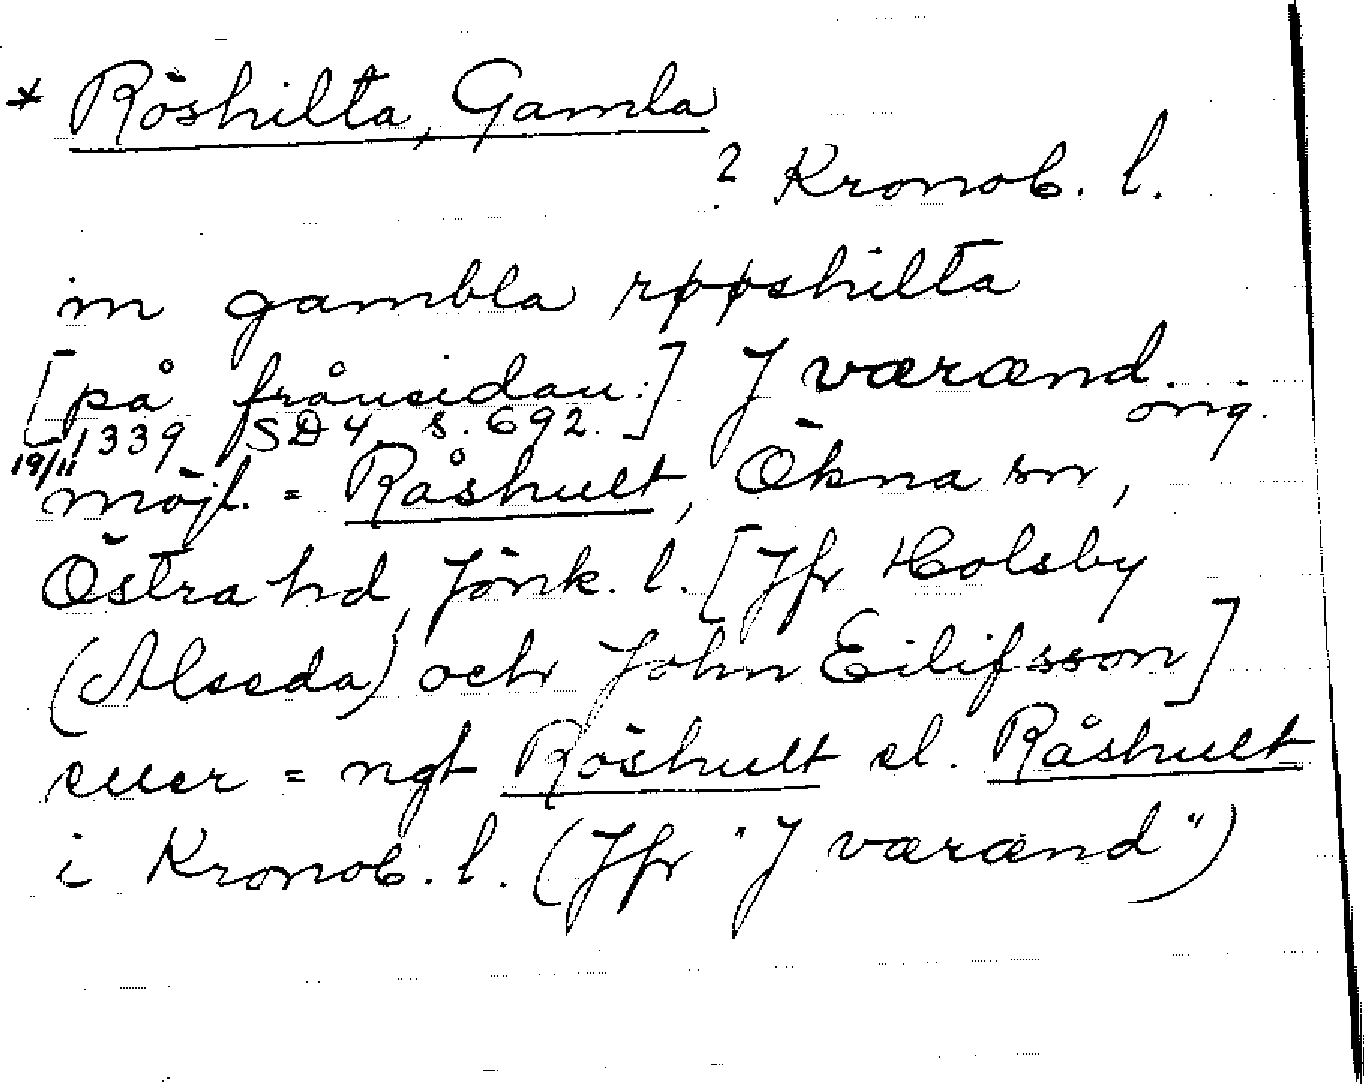 * Röshilta, Gamla
? Kronob. l.
in gambla røøshilta
[på frånsidan:] J værænd...
19/11 1339 SD 4 s. 692. orig.
möjl. = Råshult, Ökna sn,
Östra hd, Jönk. l. [Jfr Holsby
(Alseda) och John Eilifsson]
eller = ngt Röshult el. Råshult
i Kronob. l. (Jfr "J værænd")